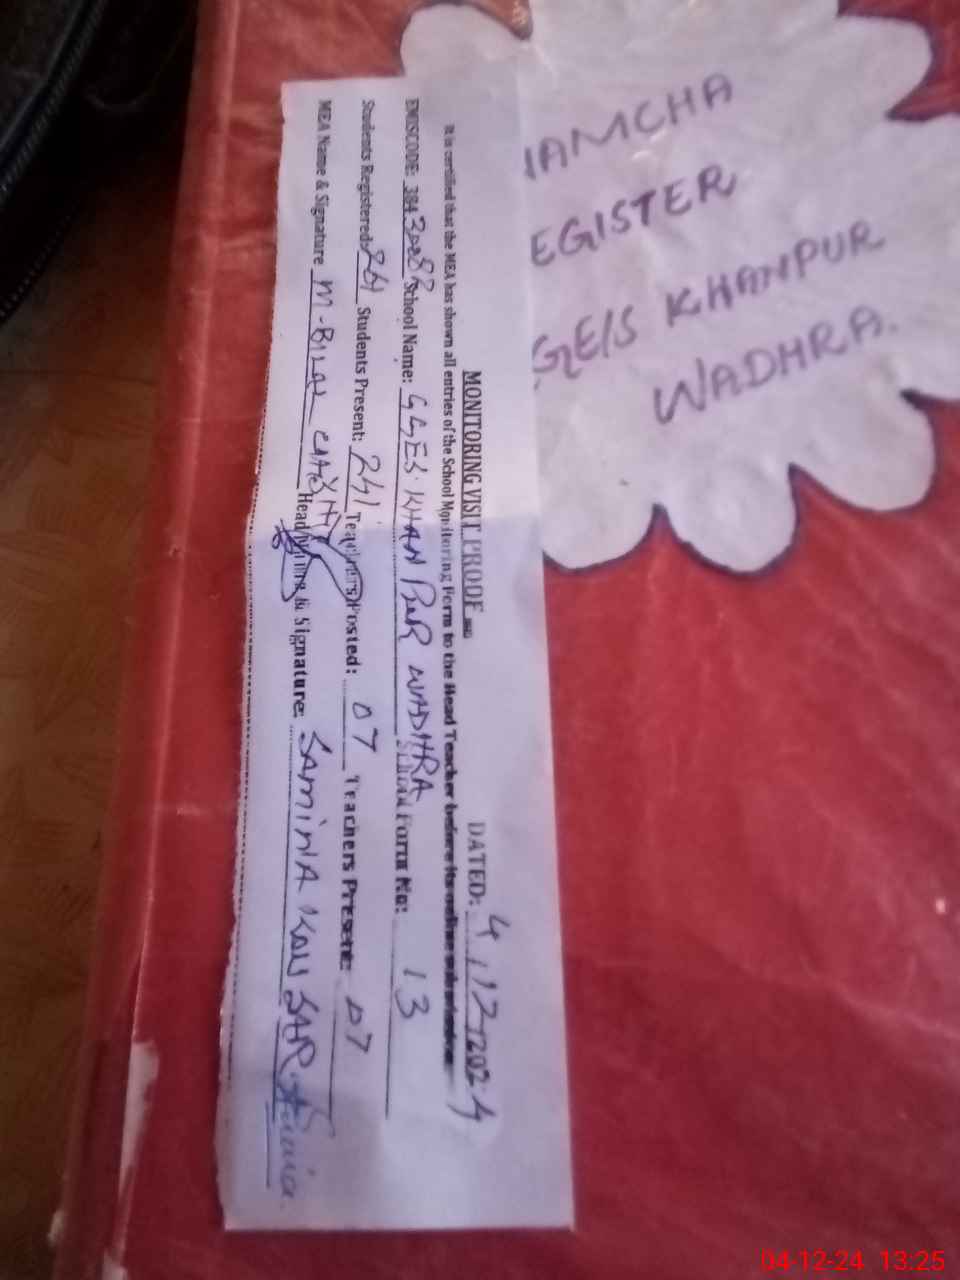 IAMCHA
EGISTER
GGE/S KHANPUR
WADHRA.
MONITORING VISIT PROOF
DATED: 4/12/2024
It is certified that the MEA has shown all entries of the School Monitoring Form to the Head Teacher before its online submission
EMISCODE: 38430082 School Name: GGES KHAN PUR WADHRA School Form No: 13
Students Registered: 261 Students Present: 241 Teachers Posted: 07 Teachers Present: 07
MEA Name & Signature M-BILAL CHISHTI Head Name & Signature: SAMINA KAUSAR
04-12-24 13:25